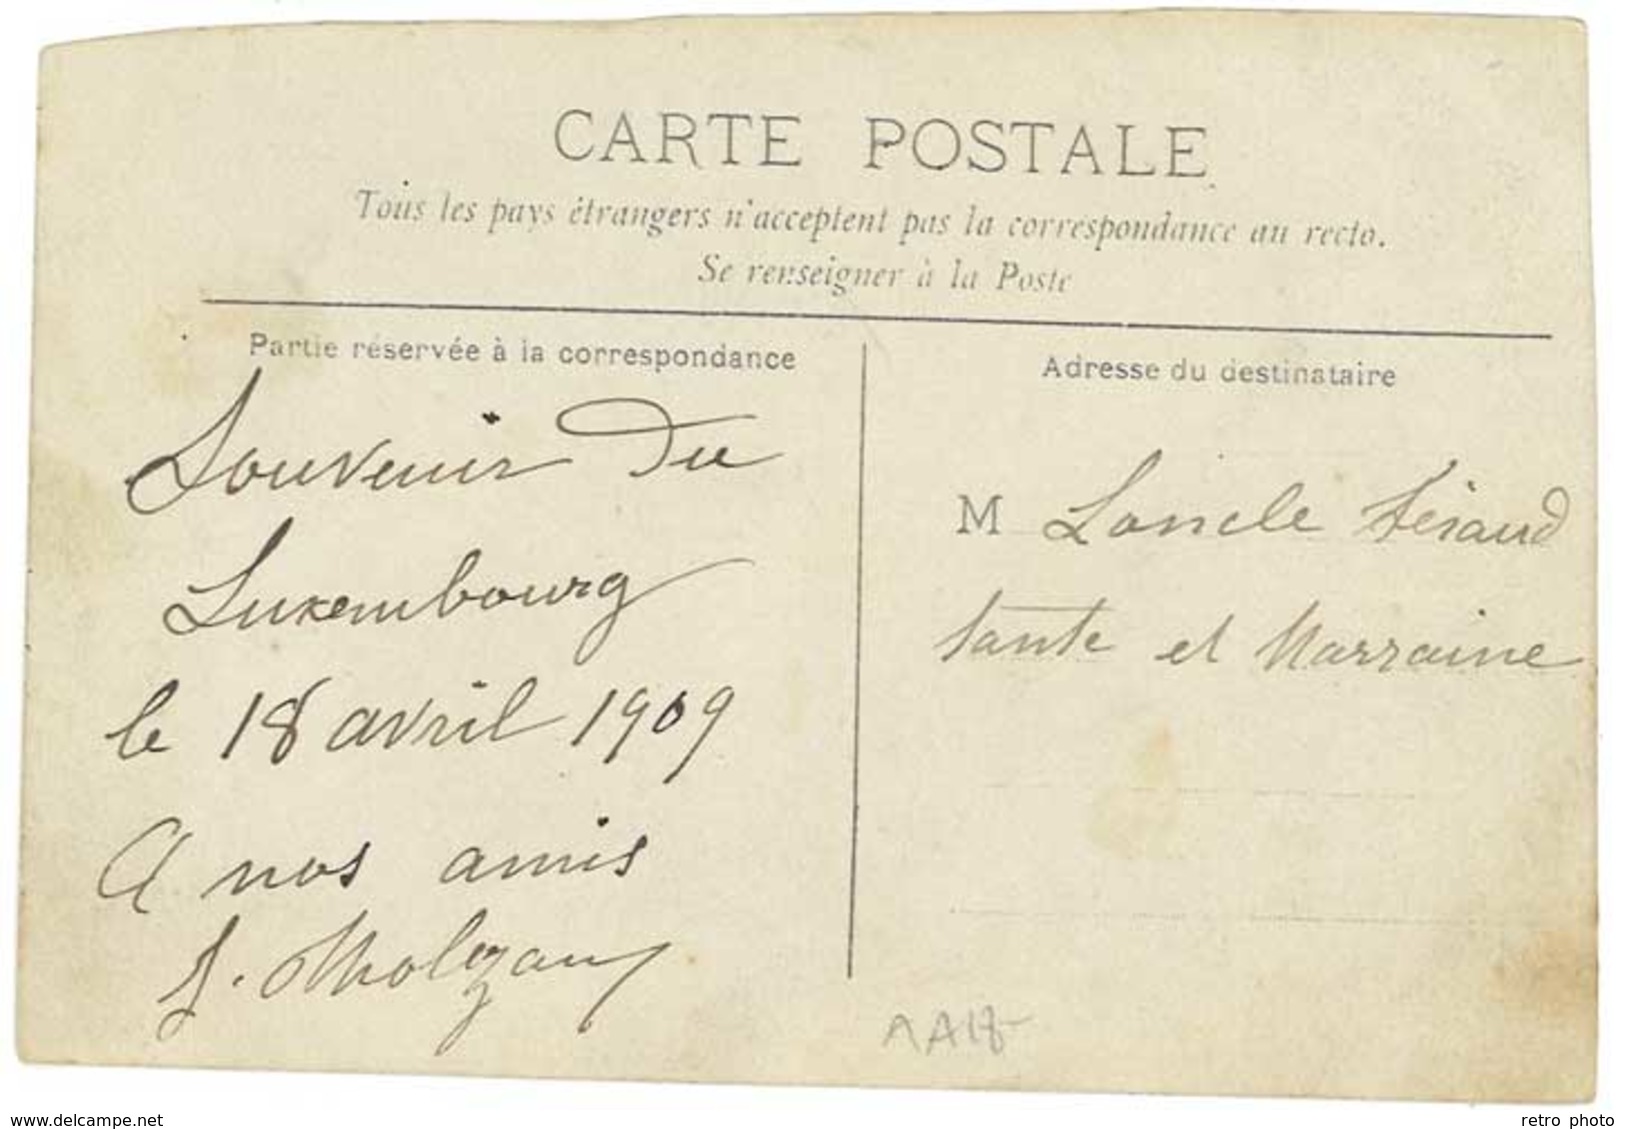 CARTE POSTALE
Tous les pays étrangers n'acceptent pas la correspondance au recto.
Se renseigner à la Poste
Partie réservée à la correspondance
Souvenir du
Luxembourg
le 18 avril 1909
A nos amis
J.
Adresse du destinataire
M Loncle
tante et Marraine
AA18
delcampe.net
retro photo